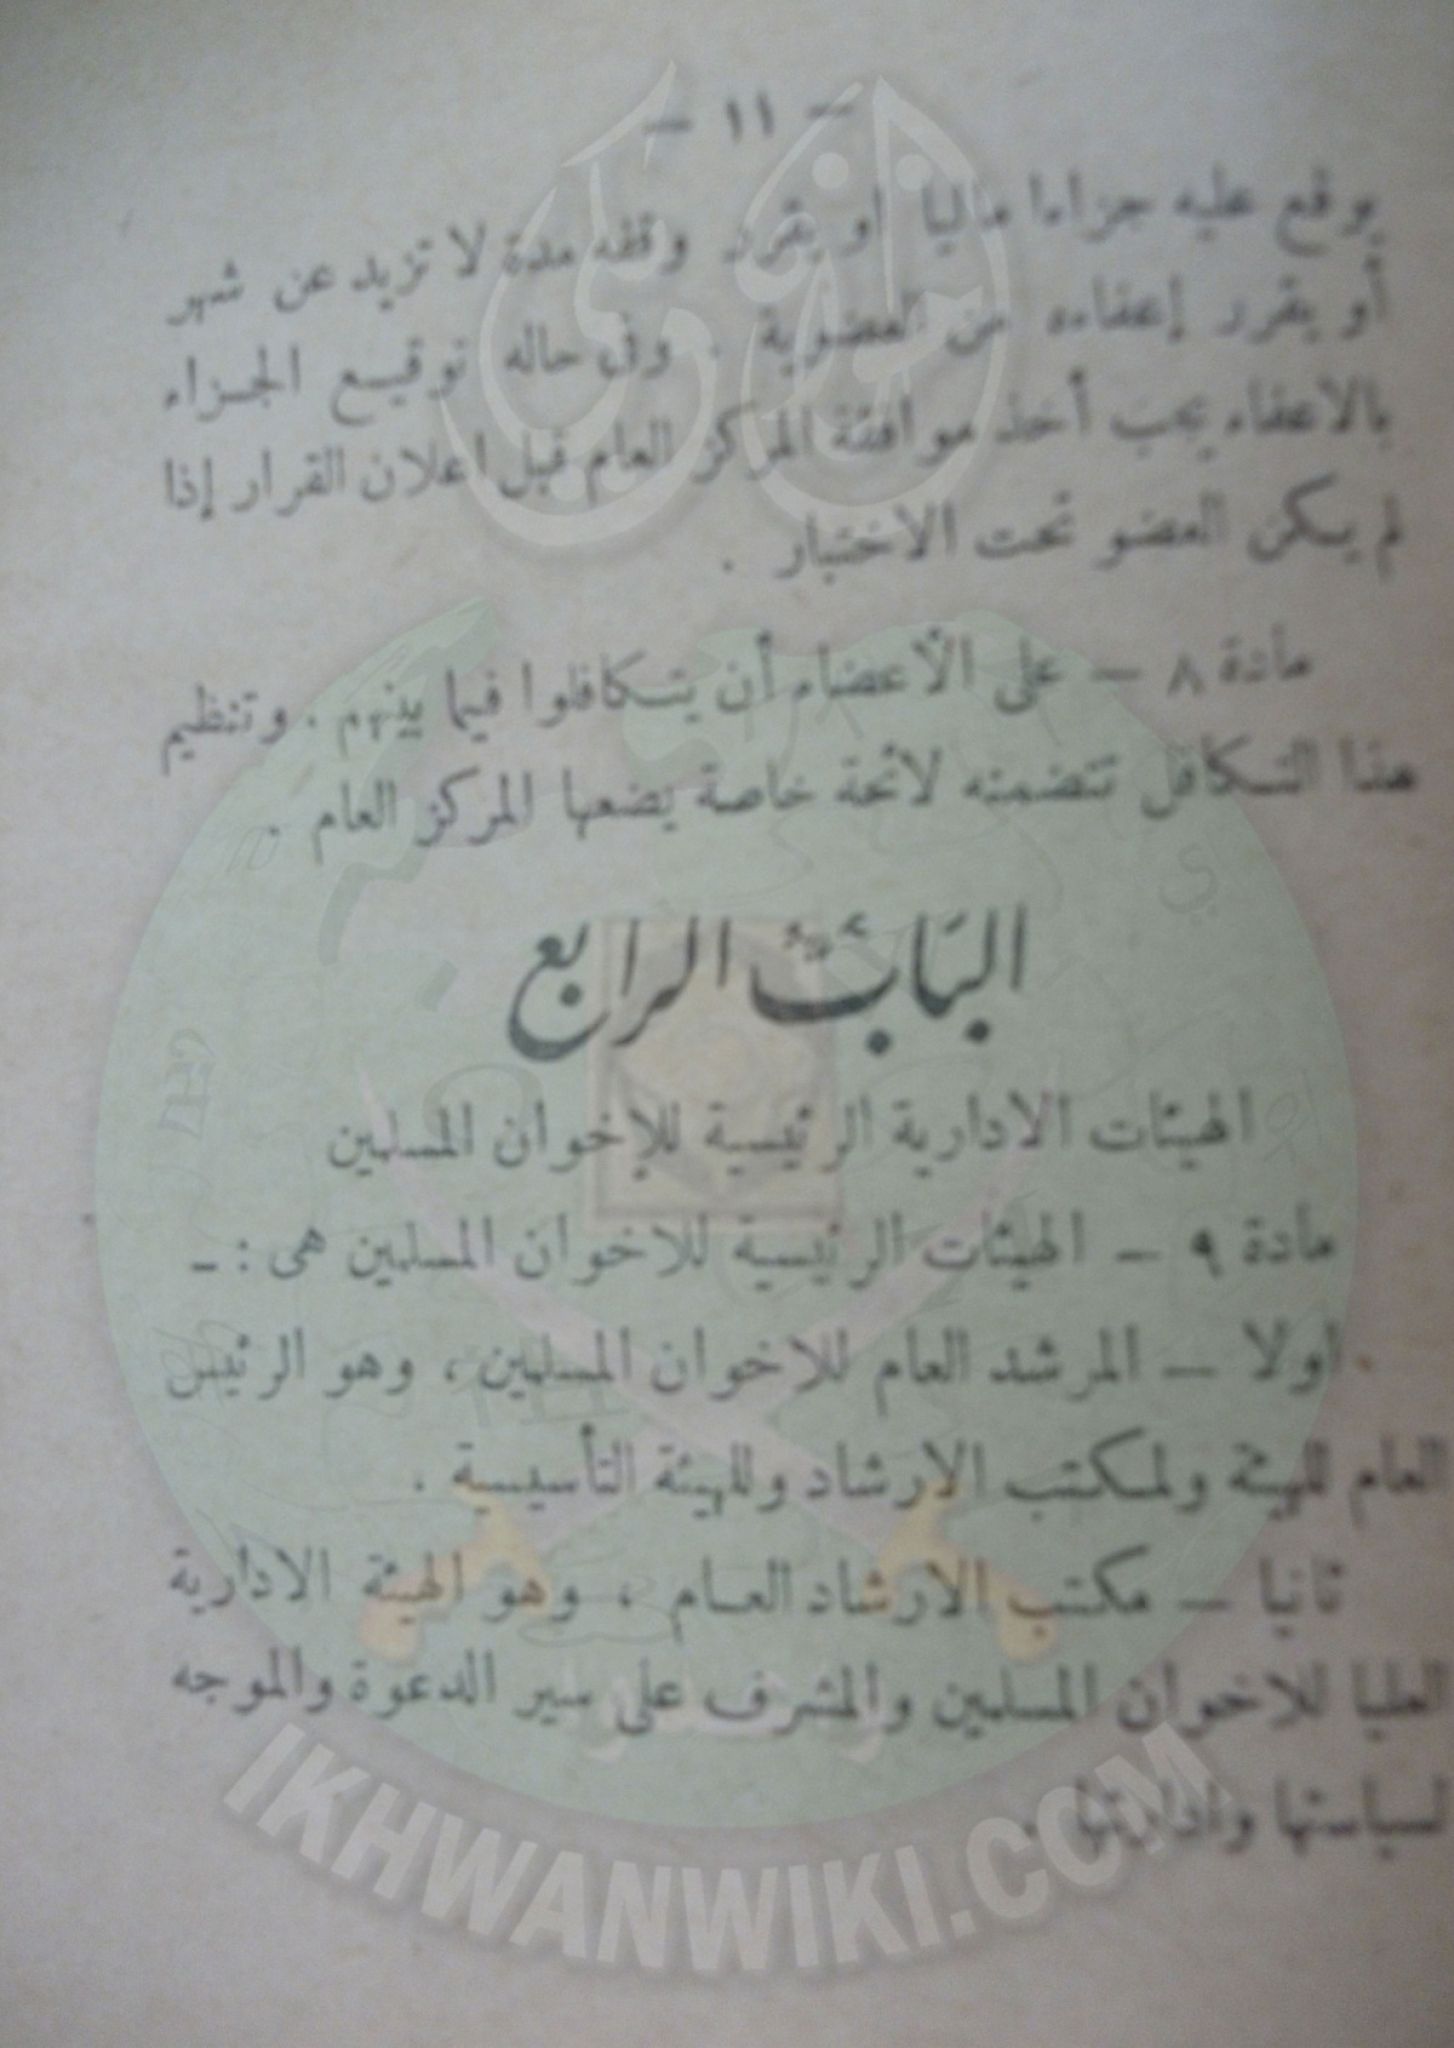 — ١١ —
يوقع عليه جزاءا ماليا او يقرر وقفه مدة لا تزيد عن شهر
أو يقرر إعفاءه من العضوية . وفى حاله توقيع الجزاء
بالاعفاء يجب أخذ موافقة المركز العام قبل اعلان القرار إذا
لم يكن العضو تحت الاختبار .
مادة ٨ — على الأعضاء أن يتكافلوا فيما بينهم . وتنظيم
هذا التكافل تتضمنه لائحة خاصة يضعها المركز العام .
الباب الرابع
الهيئات الادارية الرئيسية للإخوان المسلمين
مادة ٩ — الهيئات الرئيسية للاخوان المسلمين هى : -
اولا — المرشد العام للاخوان المسلمين ، وهو الرئيس
العام للهيئة ولمكتب الارشاد وللهيئة التأسيسية .
ثانيا — مكتب الارشاد العام ، وهو الهيئة الادارية
العليا للاخوان المسلمين والمشرف على سير الدعوة والموجه
لسياستها وادارتها .
IKHWANWIKI.COM